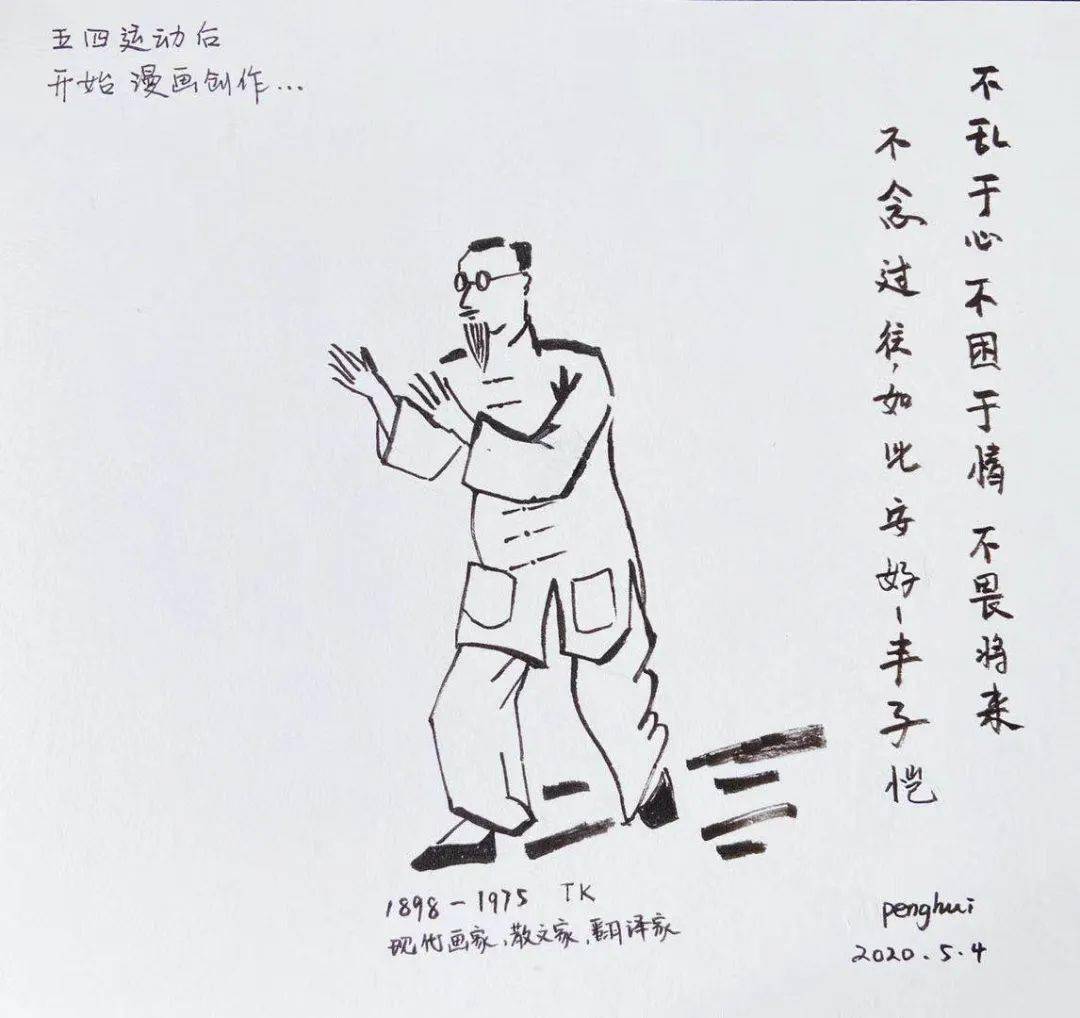 五四运动后
开始漫画创作...
不乱于心不困于情不畏将来
不念过往,如此安好-丰子恺
1898-1975 TK
现代画家、散文家、翻译家
penghui
2020.5.4